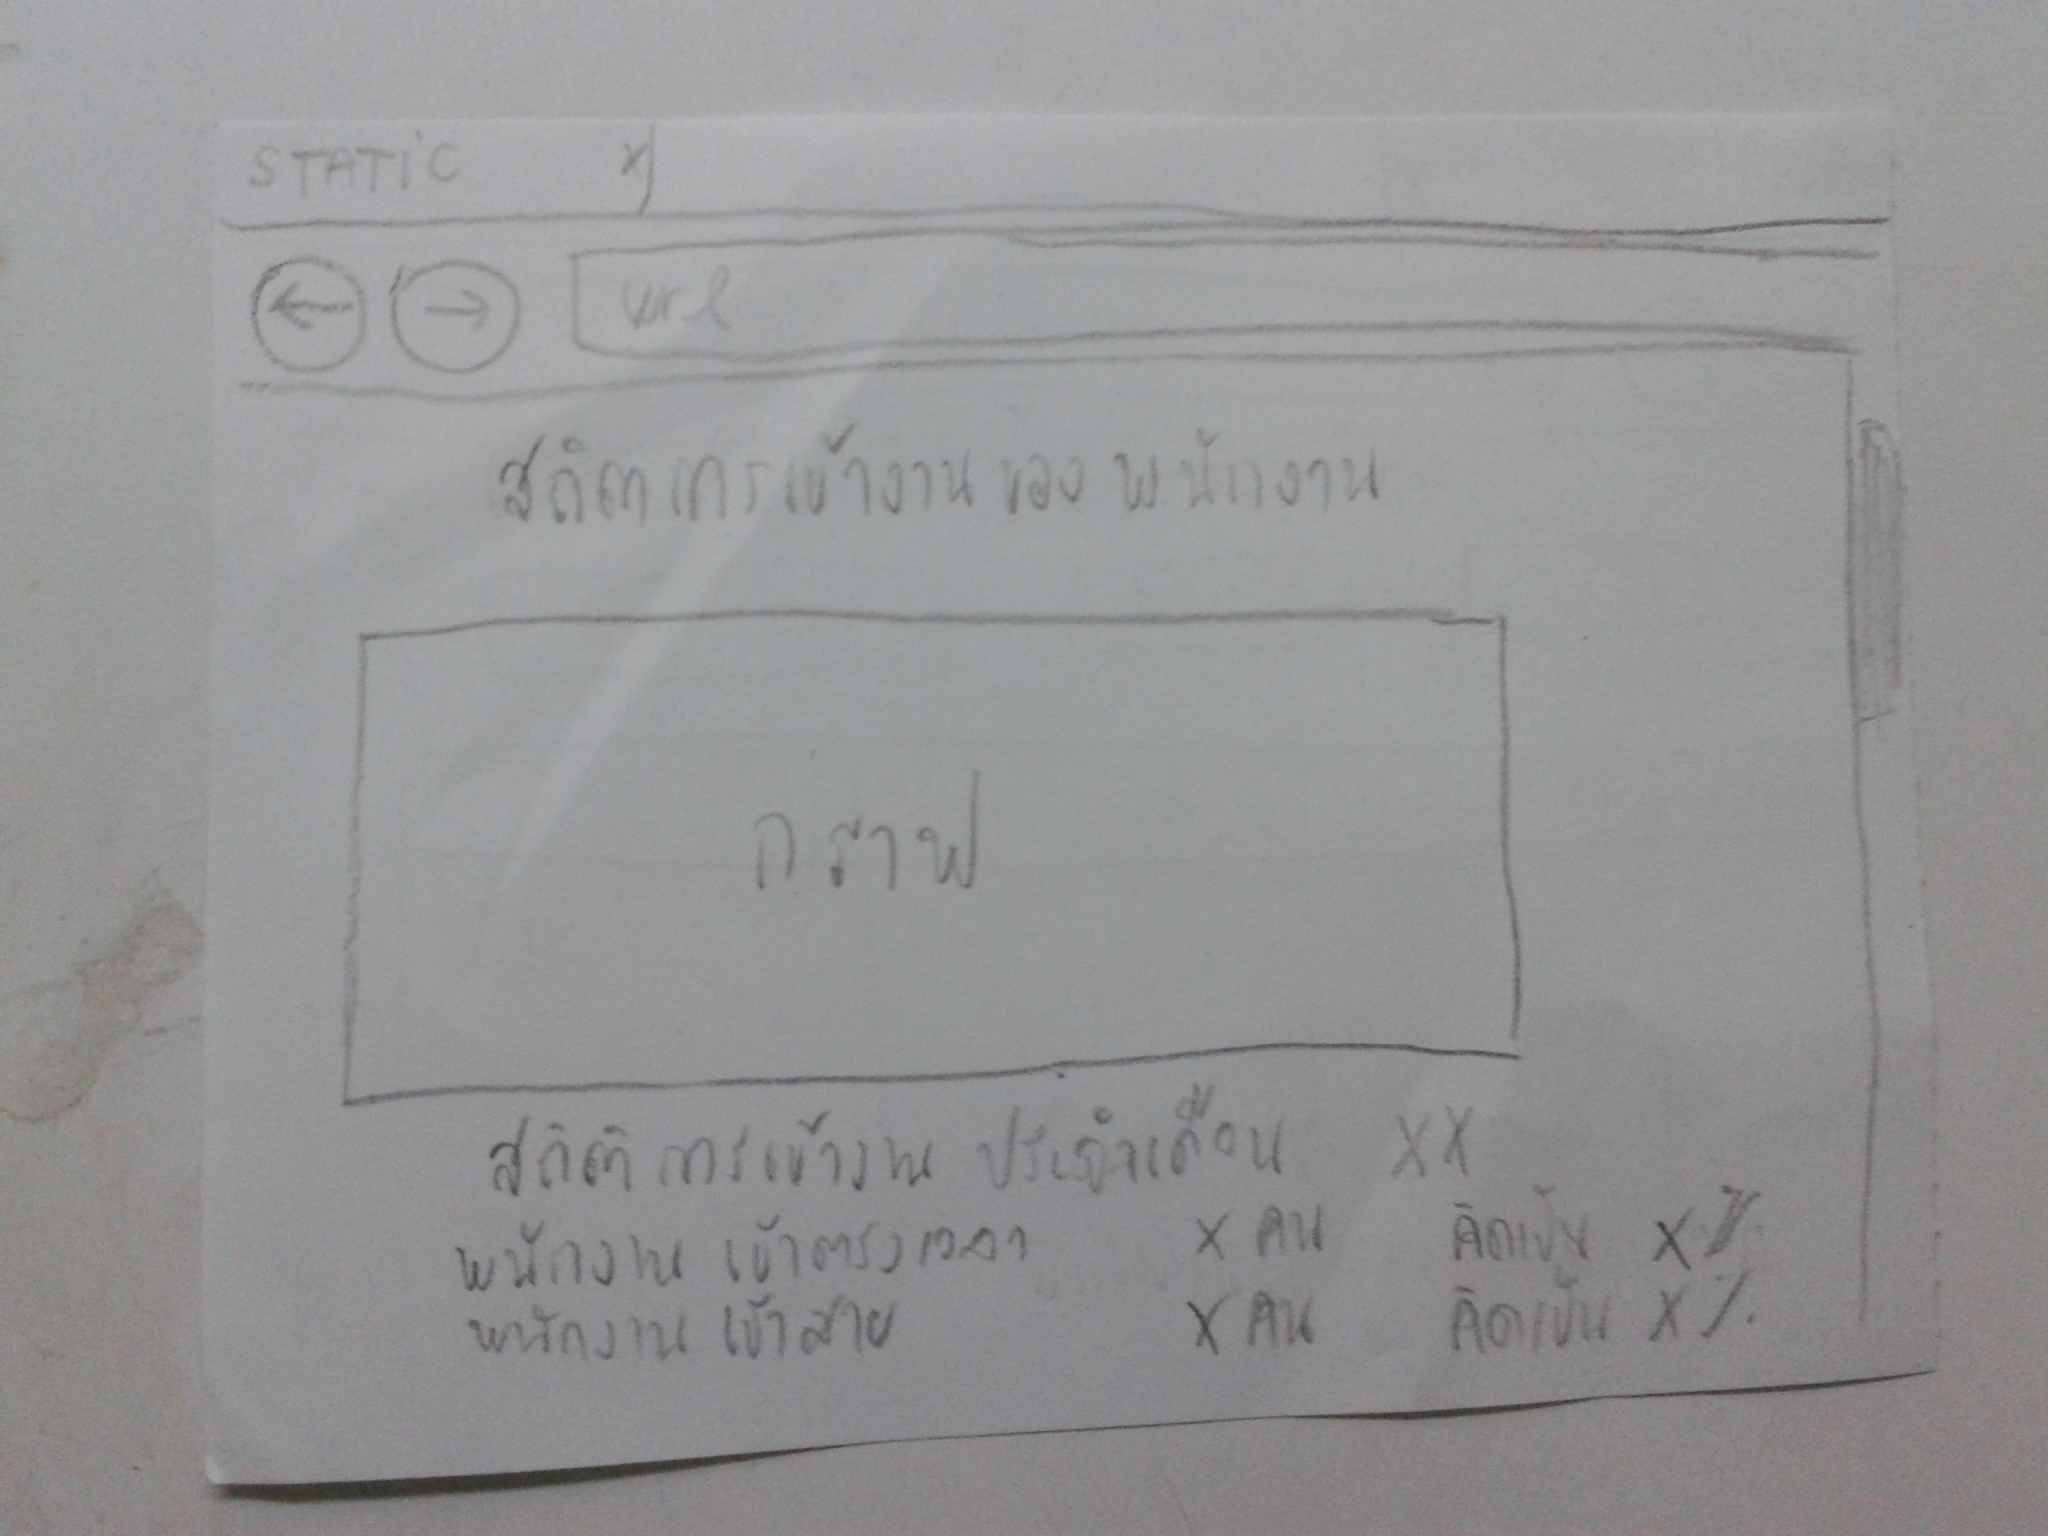 STATIC x
← → url
สถิติการเข้างานของพนักงาน
กราฟ
สถิติการเข้างาน ประจำเดือน XX
พนักงาน เข้าตรงเวลา X คน คิดเป็น X %
พนักงาน เข้าสาย X คน คิดเป็น X %